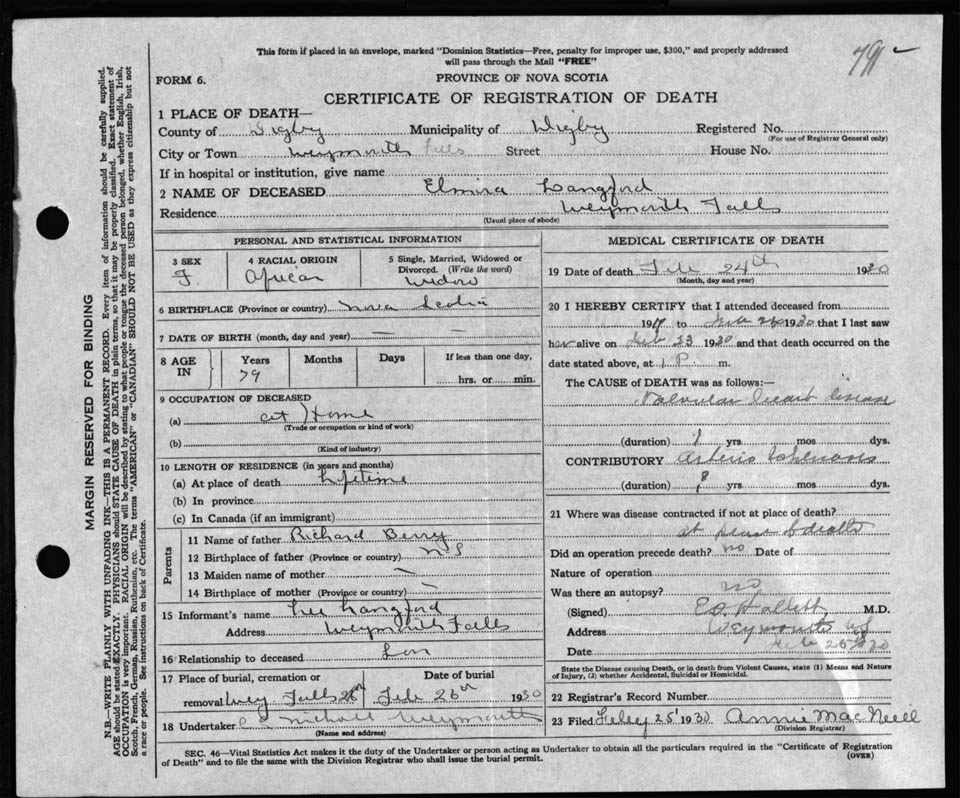 This form if placed in an envelope, marked "Dominion Statistics—Free, penalty for improper use, $300," and properly addressed
will pass through the Mail "FREE"
79
FORM 6.
PROVINCE OF NOVA SCOTIA
CERTIFICATE OF REGISTRATION OF DEATH
1 PLACE OF DEATH—
County of Digby Municipality of Digby Registered No.
(For use of Registrar General only)
City or Town Weymouth Falls Street House No.
If in hospital or institution, give name
2 NAME OF DECEASED Elmira Langford
Residence Weymouth Falls
(Usual place of abode)
PERSONAL AND STATISTICAL INFORMATION
3 SEX 4 RACIAL ORIGIN 5 Single, Married, Widowed or
Divorced. (Write the word)
F. African Widow
6 BIRTHPLACE (Province or country) Nova Scotia
7 DATE OF BIRTH (month, day and year) — —
8 AGE IN Years Months Days If less than one day,
79 hrs. or min.
9 OCCUPATION OF DECEASED
(a) at Home
(Trade or occupation or kind of work)
(b)
(Kind of industry)
10 LENGTH OF RESIDENCE (in years and months)
(a) At place of death lifetime
(b) In province
(c) In Canada (if an immigrant)
Parents
11 Name of father Richard Berry
12 Birthplace of father (Province or country) N S
13 Maiden name of mother —
14 Birthplace of mother (Province or country) —
15 Informant's name Lee Langford
Address Weymouth Falls
16 Relationship to deceased Son
17 Place of burial, cremation or Date of burial
removal Wey Falls 26th Feb 26th 1930
18 Undertaker Nichols Weymouth
(Name and address)
MEDICAL CERTIFICATE OF DEATH
19 Date of death Feb 24th 1930
(Month, day and year)
20 I HEREBY CERTIFY that I attended deceased from
19 to 1930 that I last saw
her alive on Feb 23 1930 and that death occurred on the
date stated above, at 1 P. m.
The CAUSE of DEATH was as follows:—
Valvular heart disease
(duration) 1 yrs mos dys.
CONTRIBUTORY Arterio Sclerosis
(duration) 8 yrs mos dys.
21 Where was disease contracted if not at place of death?
at place of death
Did an operation precede death? no Date of
Nature of operation
Was there an autopsy? no
(Signed) E.O. Hallett, M.D.
Address Weymouth N S
Date Feb 25 30
State the Disease causing Death, or in death from Violent Causes, state (1) Means and Nature
of Injury, (2) whether Accidental, Suicidal or Homicidal.
22 Registrar's Record Number
23 Filed 25' 1930 Annie MacNeill
(Division Registrar)
SEC. 46—Vital Statistics Act makes it the duty of the Undertaker or person acting as Undertaker to obtain all the particulars required in the "Certificate of Registration
of Death" and to file the same with the Division Registrar who shall issue the burial permit.
(OVER)
MARGIN RESERVED FOR BINDING
N.B.—WRITE PLAINLY WITH UNFADING INK—THIS IS A PERMANENT RECORD. Every item of information should be carefully supplied.
AGE should be stated EXACTLY. PHYSICIANS should STATE CAUSE OF DEATH in plain terms, so that it may be properly classified. Exact statement of
OCCUPATION is very important. RACIAL ORIGIN will be described by stating to what people or tongue the deceased person belonged, whether English, Irish,
Scotch, French, German, Russian, Ruthenian, etc. The terms "AMERICAN" or "CANADIAN" SHOULD NOT BE USED as they express citizenship but not
a race or people. See instructions on back of Certificate.